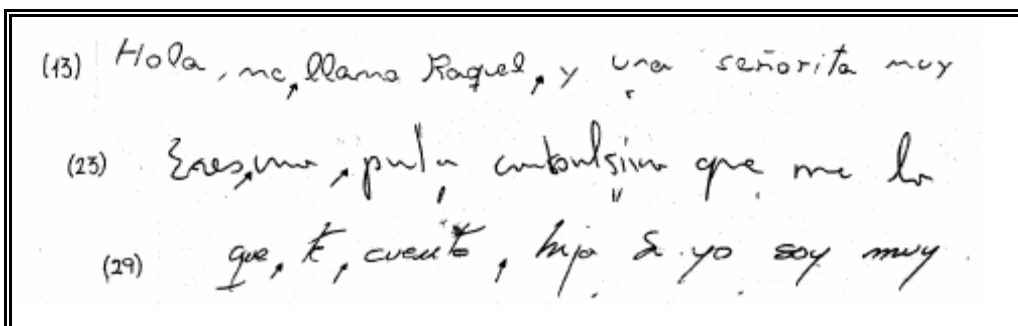 (13) Hola, me, llamo Raquel, y una señorita muy
(23) Eres, una, puta compulsiva que me lo
(29) que, te, cuento, hijo Si yo soy muy